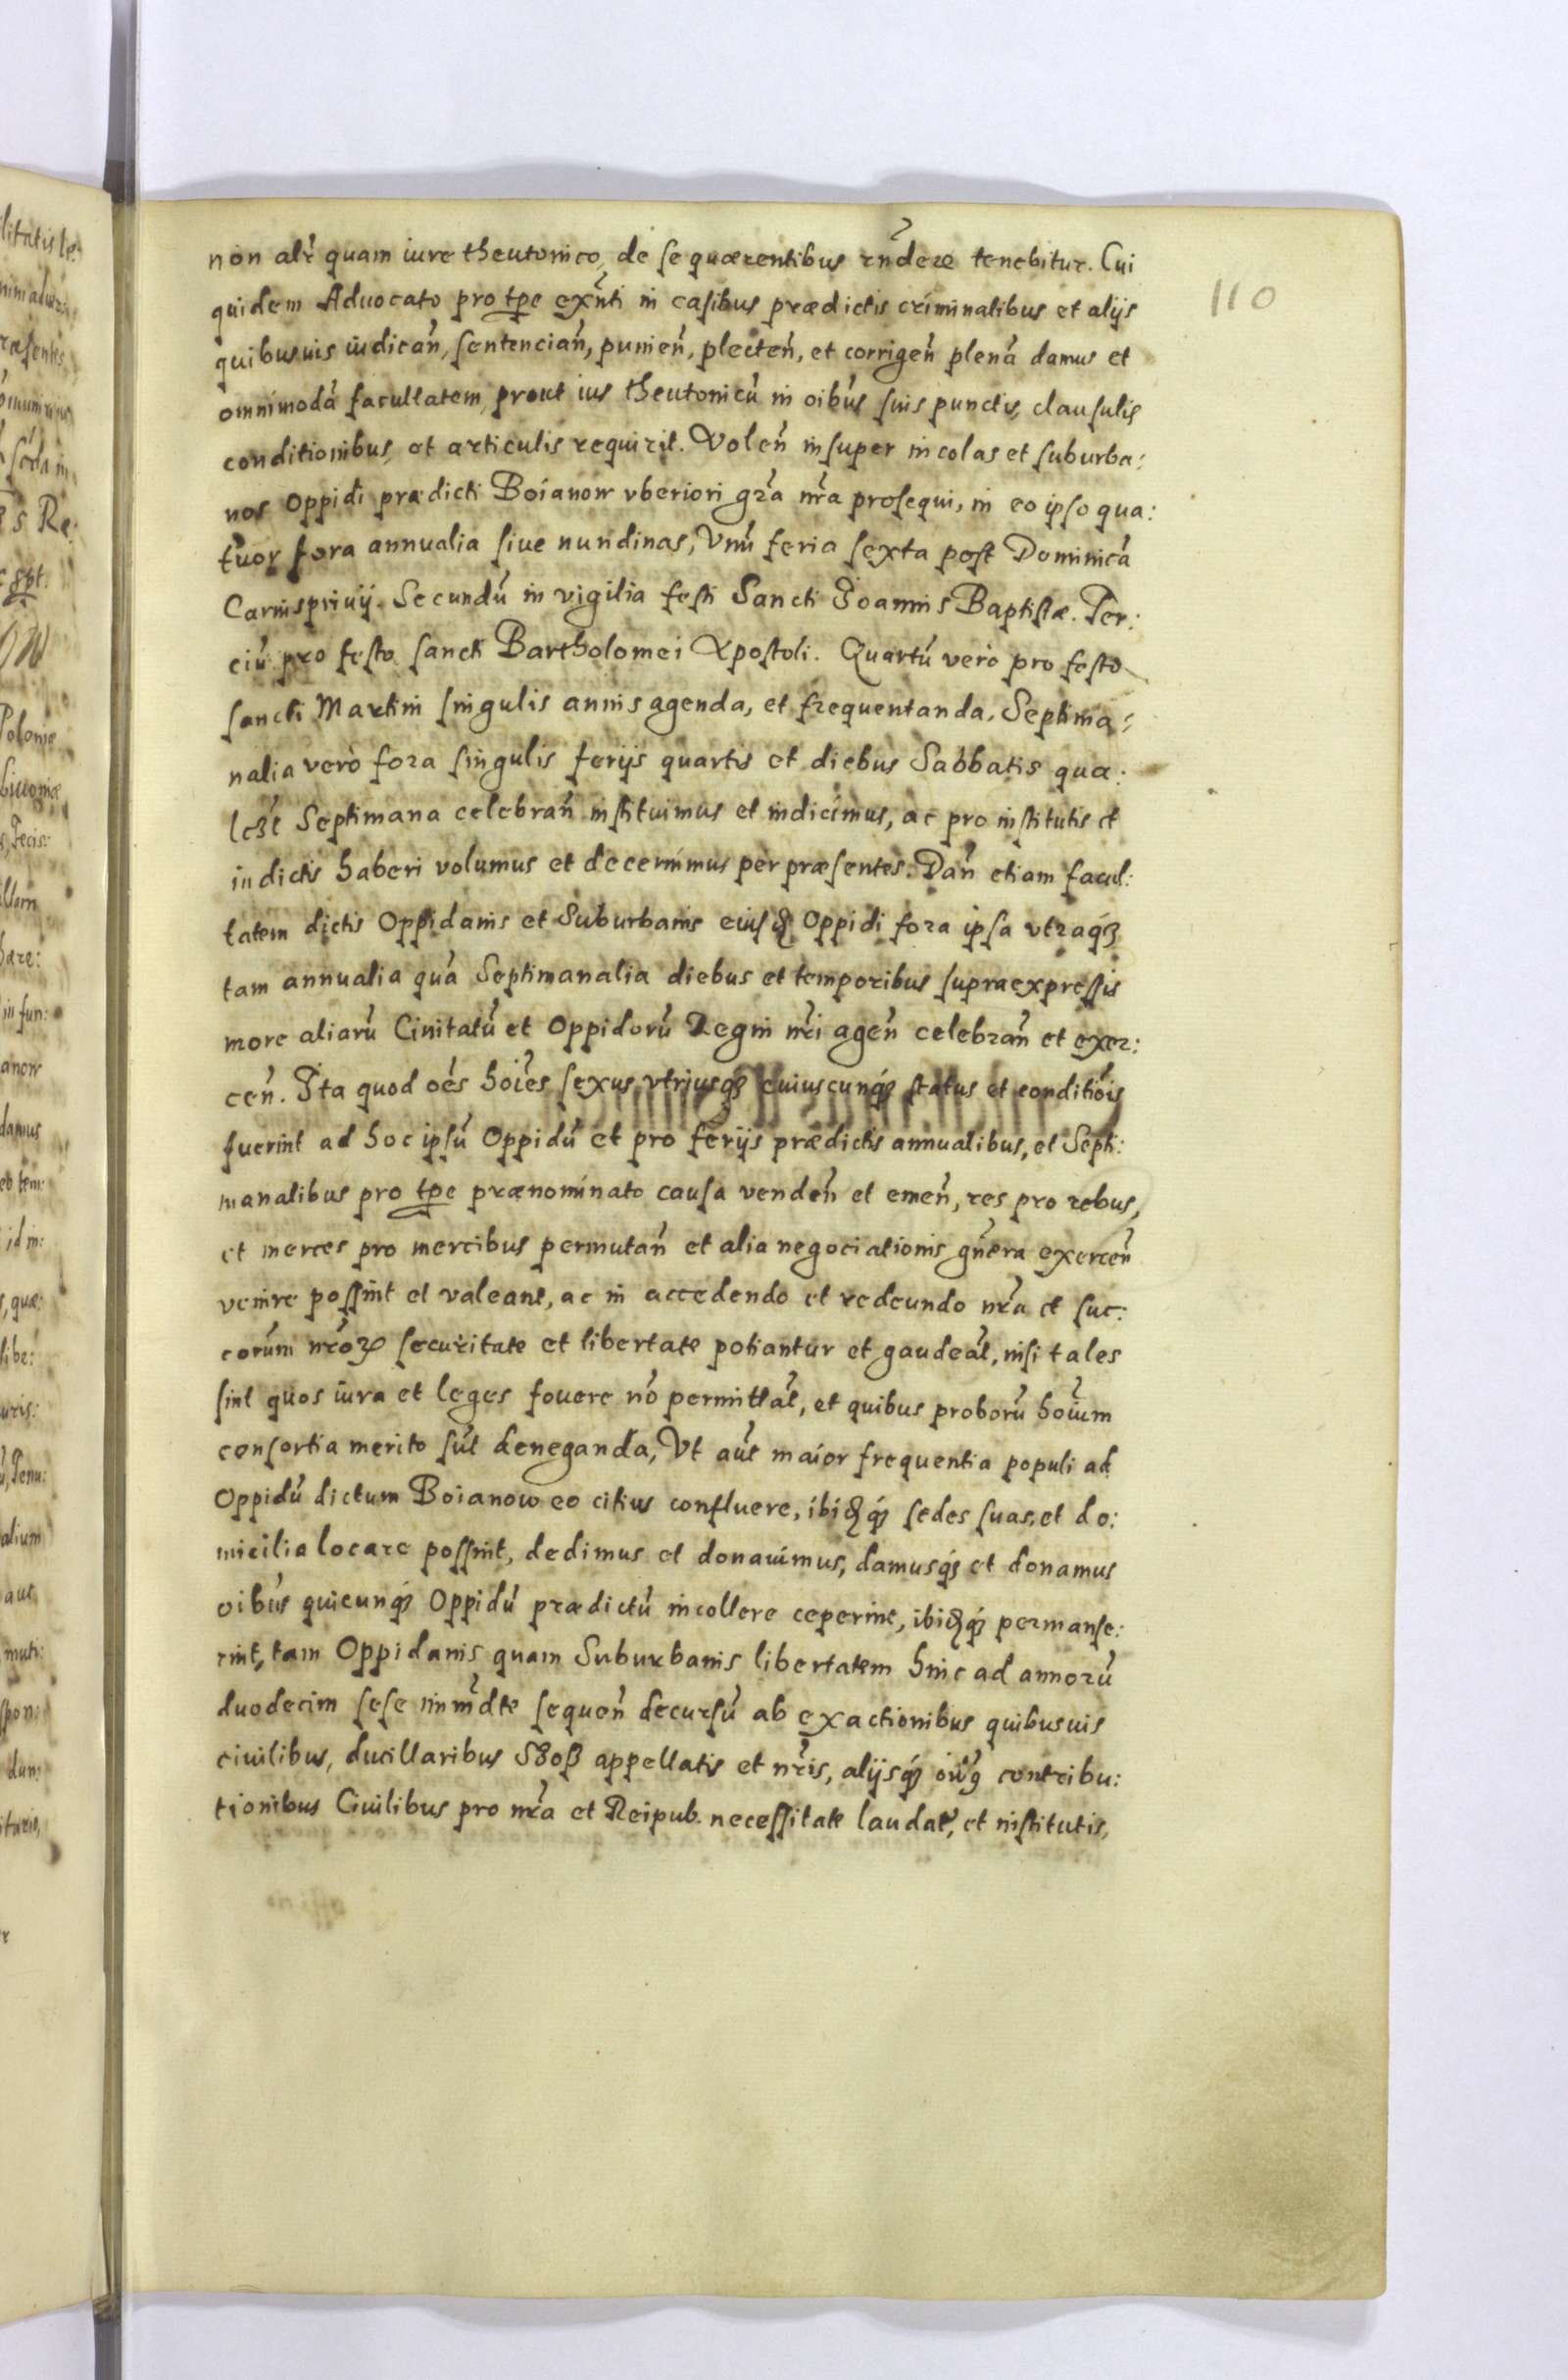 110
non alr̃ quam iure theutonico, de se quærentibus rñdere tenebitur. Cui
quidem Aduocato pro tp̱e ex̃nti in casibus prædictis criminalibus et alijs
quibusuis iudicañ, sentenciañ, punieñ, plecteñ, et corrigeñ plenã damus et
omnimodã facultatem, prout ius theutonicũ in oibũs suis punctis, clausulis
conditionibus, et articulis requirit. Voleñ insuper incolas et suburba:
nos Oppidi prædicti Boianow vberiori gr̃a nr̃a prosequi, in eo ipso qua:
tuor fora annualia siue nundinas, Vnũ feria sexta post Dominicã
Carnispriuij. Secundũ in vigilia festi Sancti Joannis Baptistæ. Ter:
ciũ pro festo sancti Bartholomei Apostoli. Quartũ verò pro festo
sancti Martini singulis annis agenda, et frequentanda, Septima:
nalia verò fora singulis ferijs quartis et diebus Sabbatis qua:
lĩƷt Septimana celebrañ instituimus et indicimus, ac pro institutis et
indictis haberi volumus et decernimus per præsentes. Dañ etiam facul:
tatem dictis Oppidanis et Suburbanis eiusđ Oppidi fora ipsa vtraqȝ
tam annualia quã Septimanalia diebus et temporibus supraexpressis
more aliarũ Ciuitatũ et Oppidorũ Regni nr̃i ageñ celebrañ et exer:
ceñ. Ita quod oẽs hoĩes sexus vtriusqȝ cuiuscunqȝ status et conditiõis
fuerint ad hoc ipsũ Oppidũ et pro ferijs prædictis annualibus, et Septi:
manalibus pro tp̱e prænominato causa vendeñ et emeñ, res pro rebus,
et merces pro mercibus permutañ et alia negociationis gñera exerceñ
venire possint et valeant, ac in accedendo et redeundo nr̃a et suc:
corũm nr̃oꝝ securitate et libertate potiantur et gaudeãt, nisi tales
sint quos iura et leges fouere nõ permittãt, et quibus proborũ hoĩum
consortia merito sũt deneganda, Vt aũt maior frequentia populi ad
Oppidũ dictum Boianow eo citius confluere, ibiđqȝ sedes suas, et do:
micilia locare possint, dedimus et donauimus, damusqȝ et donamus
oibũs quicunqȝ Oppidũ prædictũ incollere ceperint, ibiđqȝ permanse:
rint, tam Oppidanis quam Suburbanis libertatem hinc ad annorũ
duodecim sese im̃mdte sequeñ decursũ ab exactionibus quibusuis
ciuilibus, ducillaribus Szoß appellatis et nr̃is, alijsqȝ contribu:
tionibus Ciuilibus pro nr̃a et Reipub. necessitate laudat̃, et institutis,